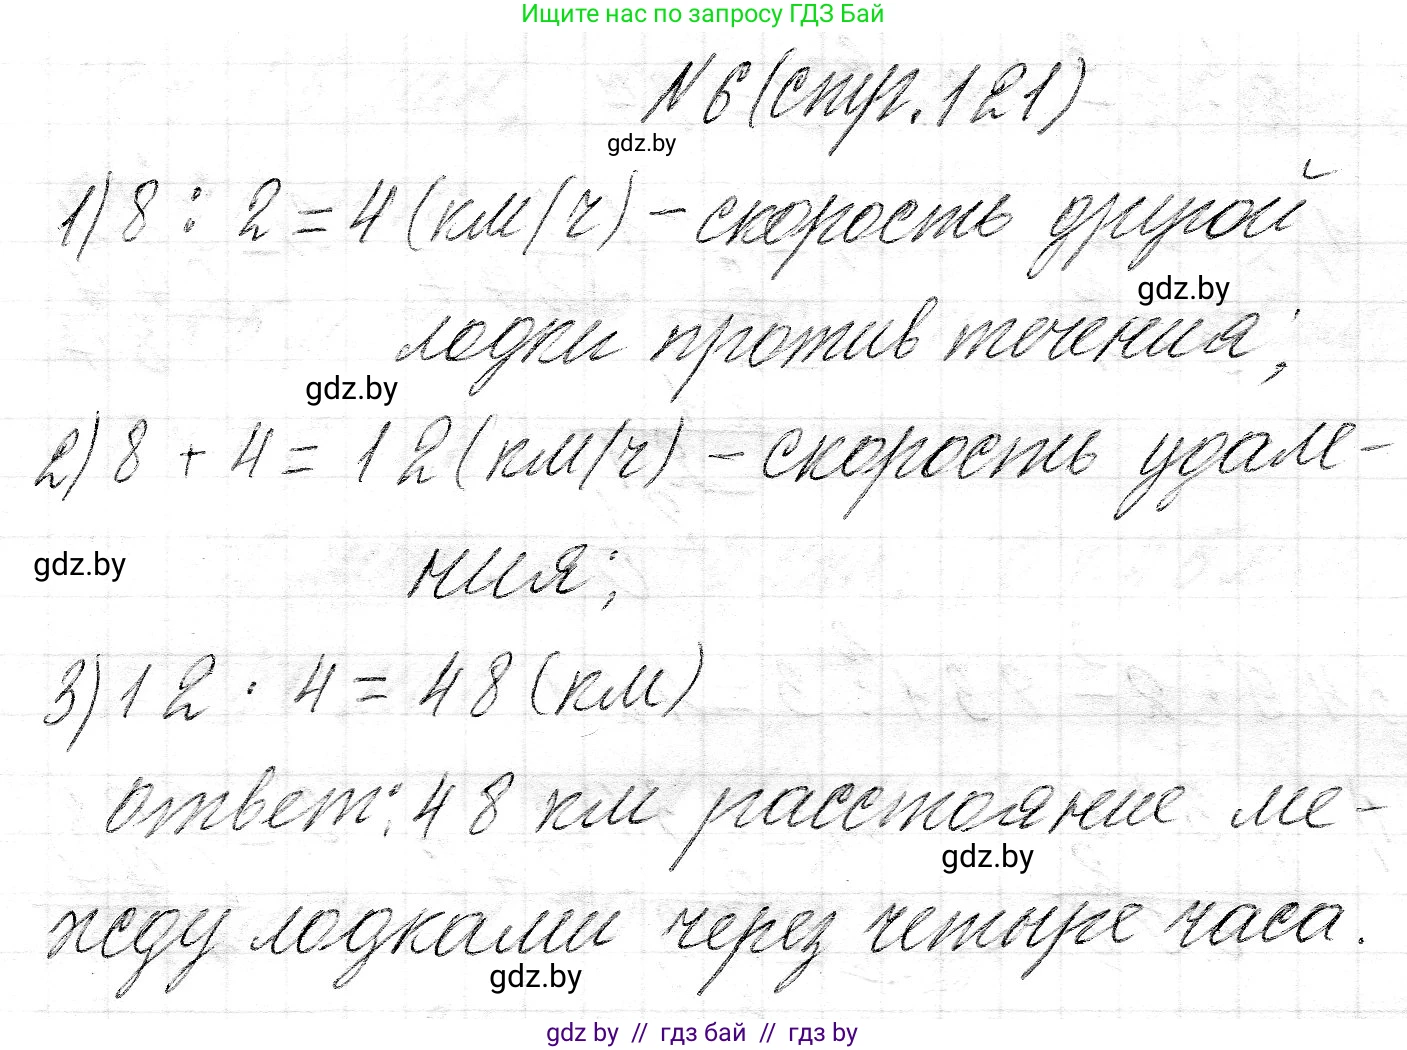 Ищите нас по запросу ГДЗ Бай
№ 6 (стр. 121)
gdz.by
1) 8 : 2 = 4 (км/ч) - скорость другой
gdz.by
лодки против течения;
gdz.by
2) 8 + 4 = 12 (км/ч) - скорость удале-
gdz.by
ния;
3) 12 · 4 = 48 (км)
ответ: 48 км расстояние ме-
gdz.by
жду лодками через четыре часа.
gdz.by
gdz by // гдз бай // гдз by